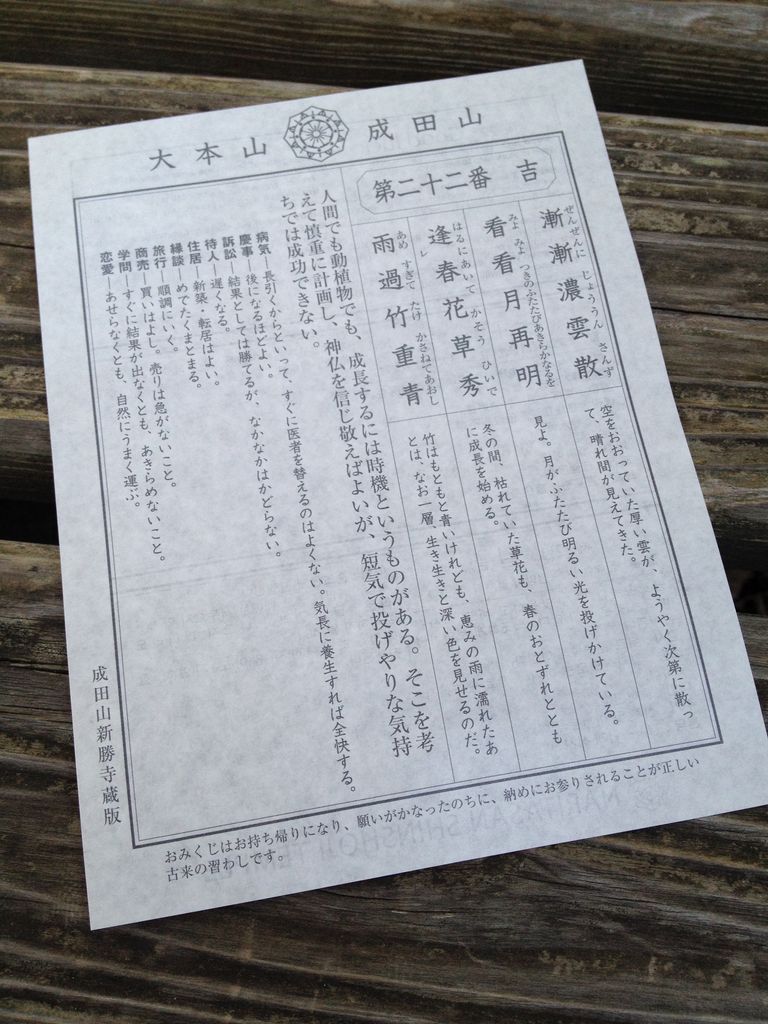 大本山 成田山
第二十二番 吉
漸漸濃雲散
ぜんぜんに じょううん さんず
空をおおっていた厚い雲が、ようやく次第に散っ
て、晴れ間が見えてきた。
看看月再明
みよ みよ つきのふたたびあきらかなるを
見よ。月がふたたび明るい光を投げかけている。
逢レ春花草秀
はるにあいて かそう ひいで
冬の間、枯れていた草花も、春のおとずれととも
に成長を始める。
雨過竹重青
あめ すぎて たけ かさねてあおし
竹はもともと青いけれども、恵みの雨に濡れたあ
とは、なお一層、生き生きと深い色を見せるのだ。
人間でも動植物でも、成長するには時機というものがある。そこを考
えて慎重に計画し、神仏を信じ敬えばよいが、短気で投げやりな気持
ちでは成功できない。
病気―長引くからといって、すぐに医者を替えるのはよくない。気長に養生すれば全快する。
慶事―後になるほどよい。
訴訟―結果としては勝てるが、なかなかはかどらない。
待人―遅くなる。
住居―新築・転居はよい。
縁談―めでたくまとまる。
旅行―順調にいく。
商売―買いはよし。売りは急がないこと。
学問―すぐに結果が出なくとも、あきらめないこと。
恋愛―あせらなくとも、自然にうまく運ぶ。
成田山新勝寺蔵版
おみくじはお持ち帰りになり、願いがかなったのちに、納めにお参りされることが正しい
古来の習わしです。